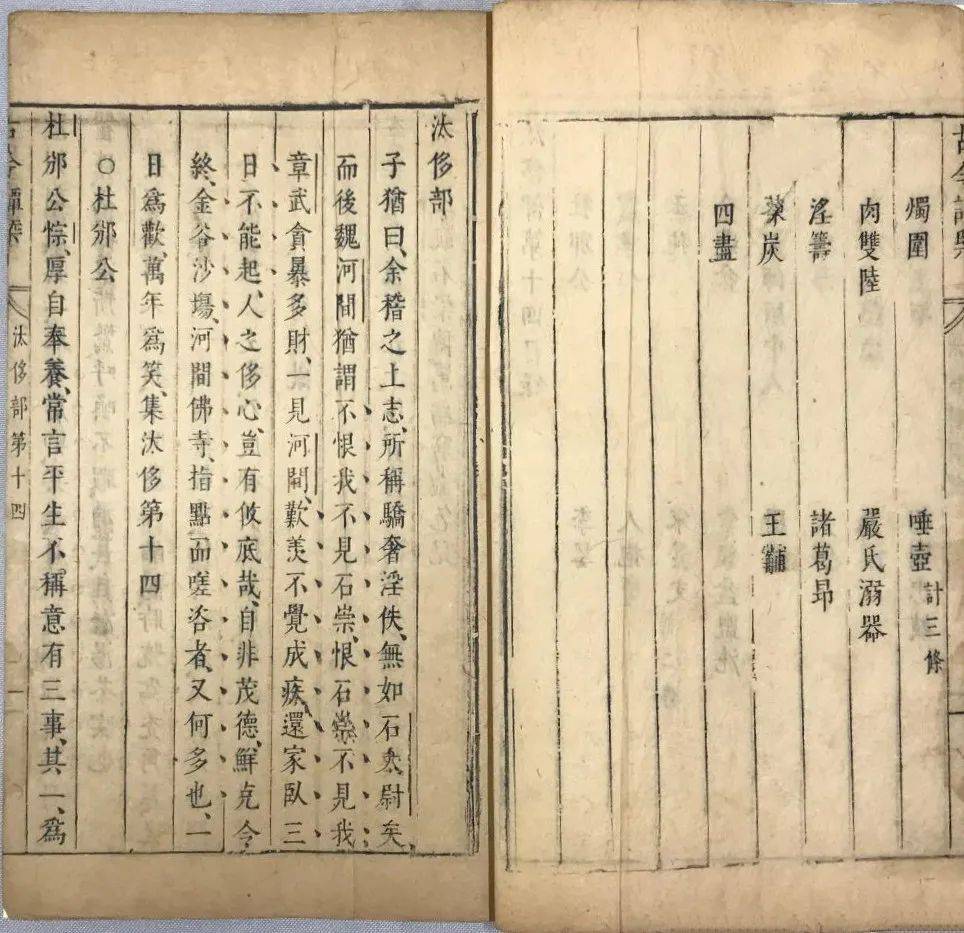 古今譚槩
燭圍　唾壺 計三條
肉雙陸　嚴氏溺器
淫籌　諸葛昂
炭　王黼
四盡
汰侈部
子猶曰、余稽之上志、所稱驕奢淫佚、無如石太尉矣、
而後魏河間猶謂不恨我不見石崇、恨石崇不見我、
章武貪暴多財、一見河間、歎羡不覺成疾、還家臥三
日不能起、人之侈心、豈有攸底哉、自非茂德、鮮克令
終、金谷沙塲、河間佛寺、指點而嗟咨者、又何多也、一
日爲歡、萬年爲笑、集汰侈第十四
○杜邠公
杜邠公悰、厚自奉養、常言平生不稱意有三事、其一、爲
古今譚槩　汰侈部第十四　一